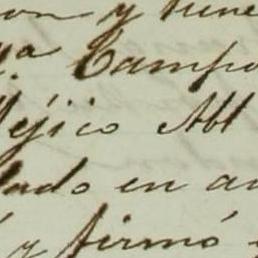 on y tiene
ya Campo
Méjico Abl
lado en a
y firmó